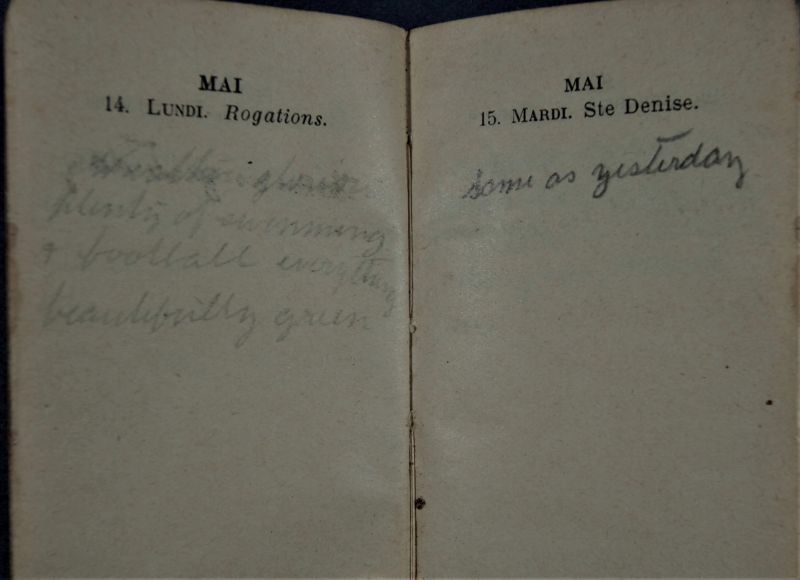 MAI
14. LUNDI. Rogations.
Weather glorious
plenty of swimming
& football everything
beautifully green
MAI
15. MARDI. Ste Denise.
Same as yesterday